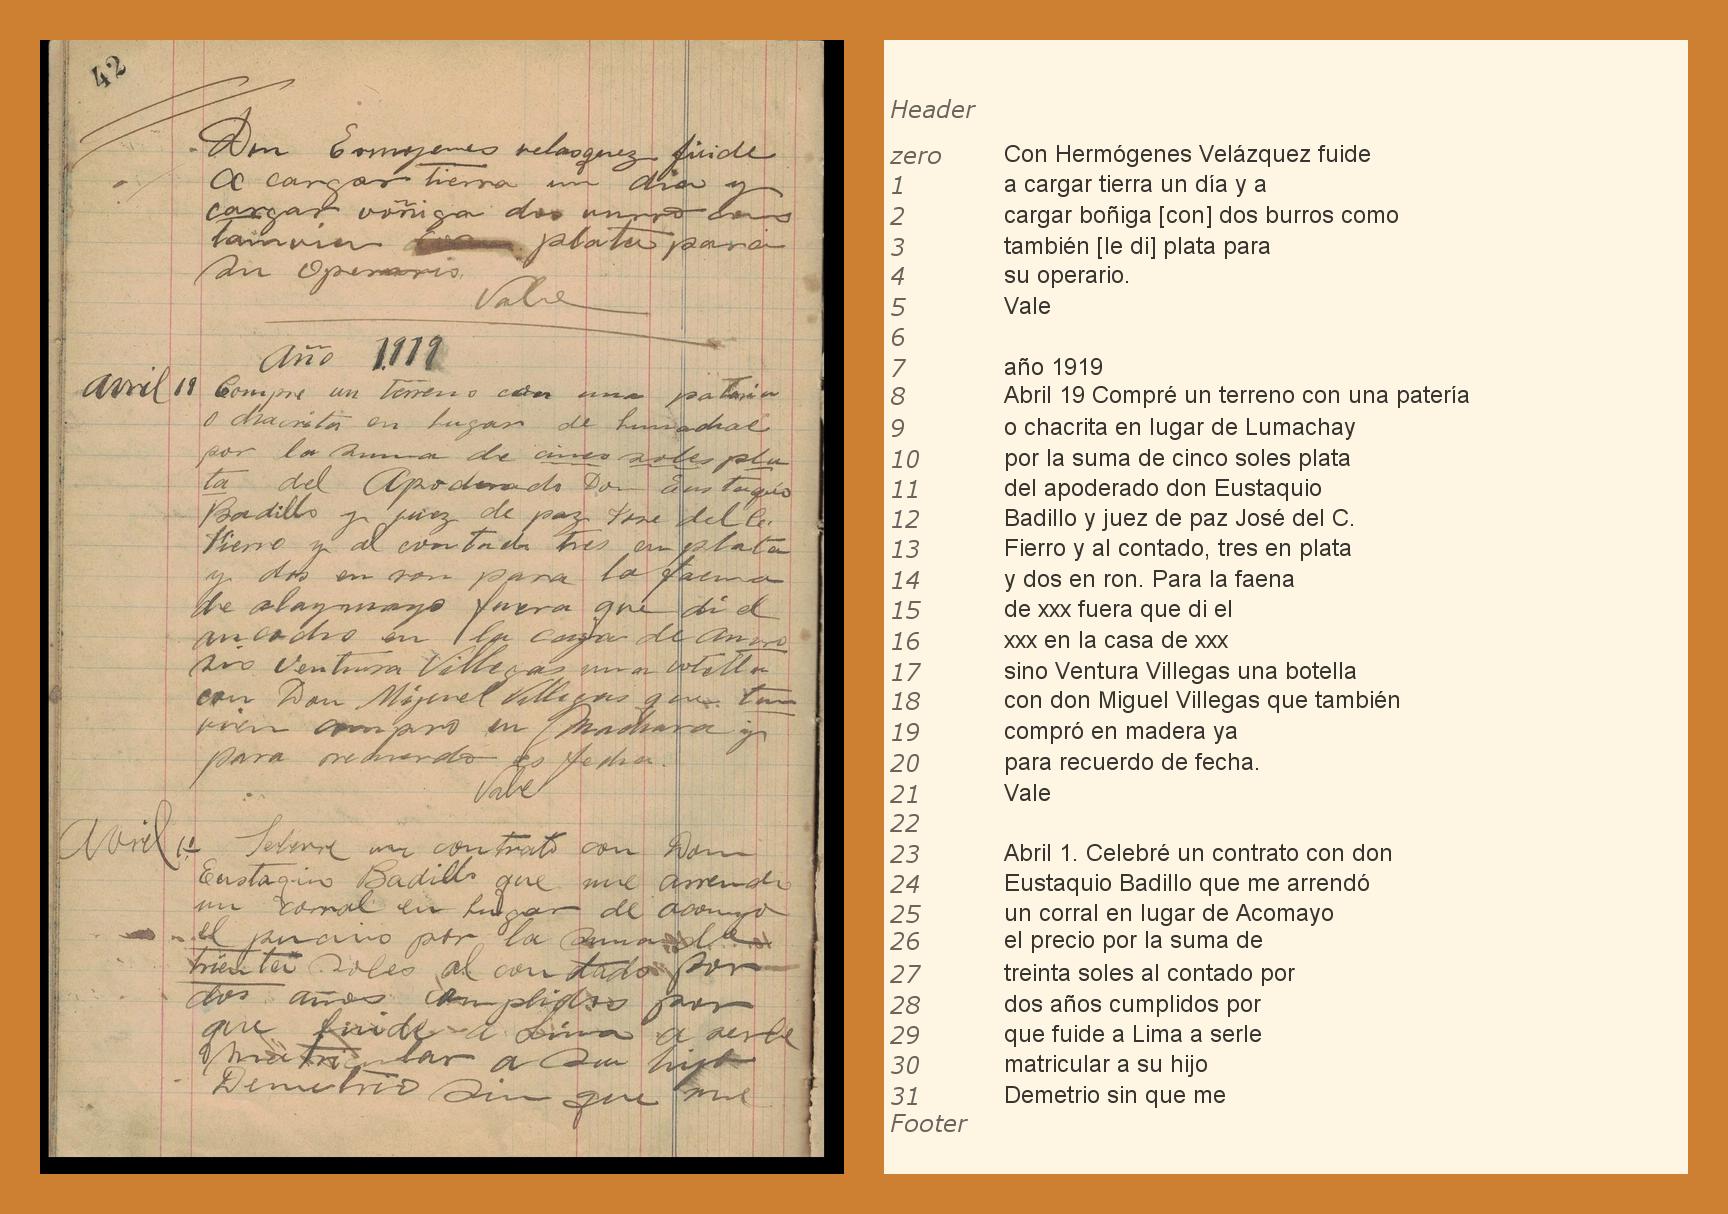 42
Don Ermojenes velasquez fuide
a cargar tierra un dia y
cargar voñiga dos vurro como
tamvien plata para
su Operario.
Vale
Año 1919
Avril 19 Compre un terreno con una pateria
o chacrita en lugar de lumachae
por la suma de cinco soles pla
ta del Apoderado Don Eustaquio
Badillo y juez de paz Jose del C.
Fierro y al contado tres en plata
y dos en ron para la faena
de fuera que di el
en la casa de
sio Ventura Villegas una votella
con Don Miguel Villegas que tan
vien compro en Madrara y
para recuerdo es fecha.
Vale
Avril 1º Selevre un contrato con Don
Eustaqio Badillo que me arrendo
un corral en lugar de acomayo
el precio por la suma de
treinta soles al contado por
dos años complidos por
que fuide a Lima a serle
Matricular a su hijo
Demetrio sin que me
Header
zero Con Hermógenes Velázquez fuide
1 a cargar tierra un día y a
2 cargar boñiga [con] dos burros como
3 también [le di] plata para
4 su operario.
5 Vale
6
7 año 1919
8 Abril 19 Compré un terreno con una patería
9 o chacrita en lugar de Lumachay
10 por la suma de cinco soles plata
11 del apoderado don Eustaquio
12 Badillo y juez de paz José del C.
13 Fierro y al contado, tres en plata
14 y dos en ron. Para la faena
15 de xxx fuera que di el
16 xxx en la casa de xxx
17 sino Ventura Villegas una botella
18 con don Miguel Villegas que también
19 compró en madera ya
20 para recuerdo de fecha.
21 Vale
22
23 Abril 1. Celebré un contrato con don
24 Eustaquio Badillo que me arrendó
25 un corral en lugar de Acomayo
26 el precio por la suma de
27 treinta soles al contado por
28 dos años cumplidos por
29 que fuide a Lima a serle
30 matricular a su hijo
31 Demetrio sin que me
Footer